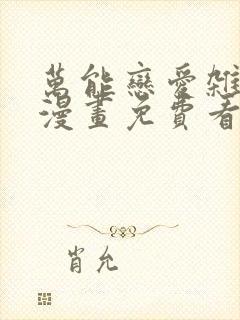 萬能戀愛雜
漫畫免費看
肖允